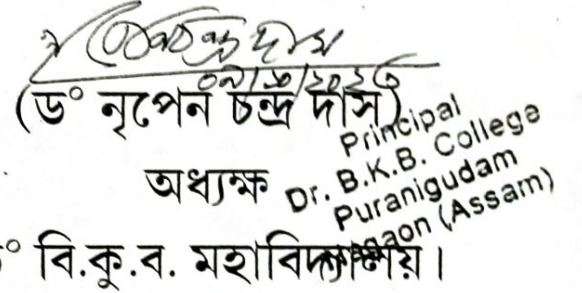 (ড° নৃপেন চন্দ্ৰ দাস)
অধ্যক্ষ
ড° বি.কু.ব. মহাবিদ্যালয়।
Principal
Dr. B.K.B. College
Puranigudam
Nagaon (Assam)